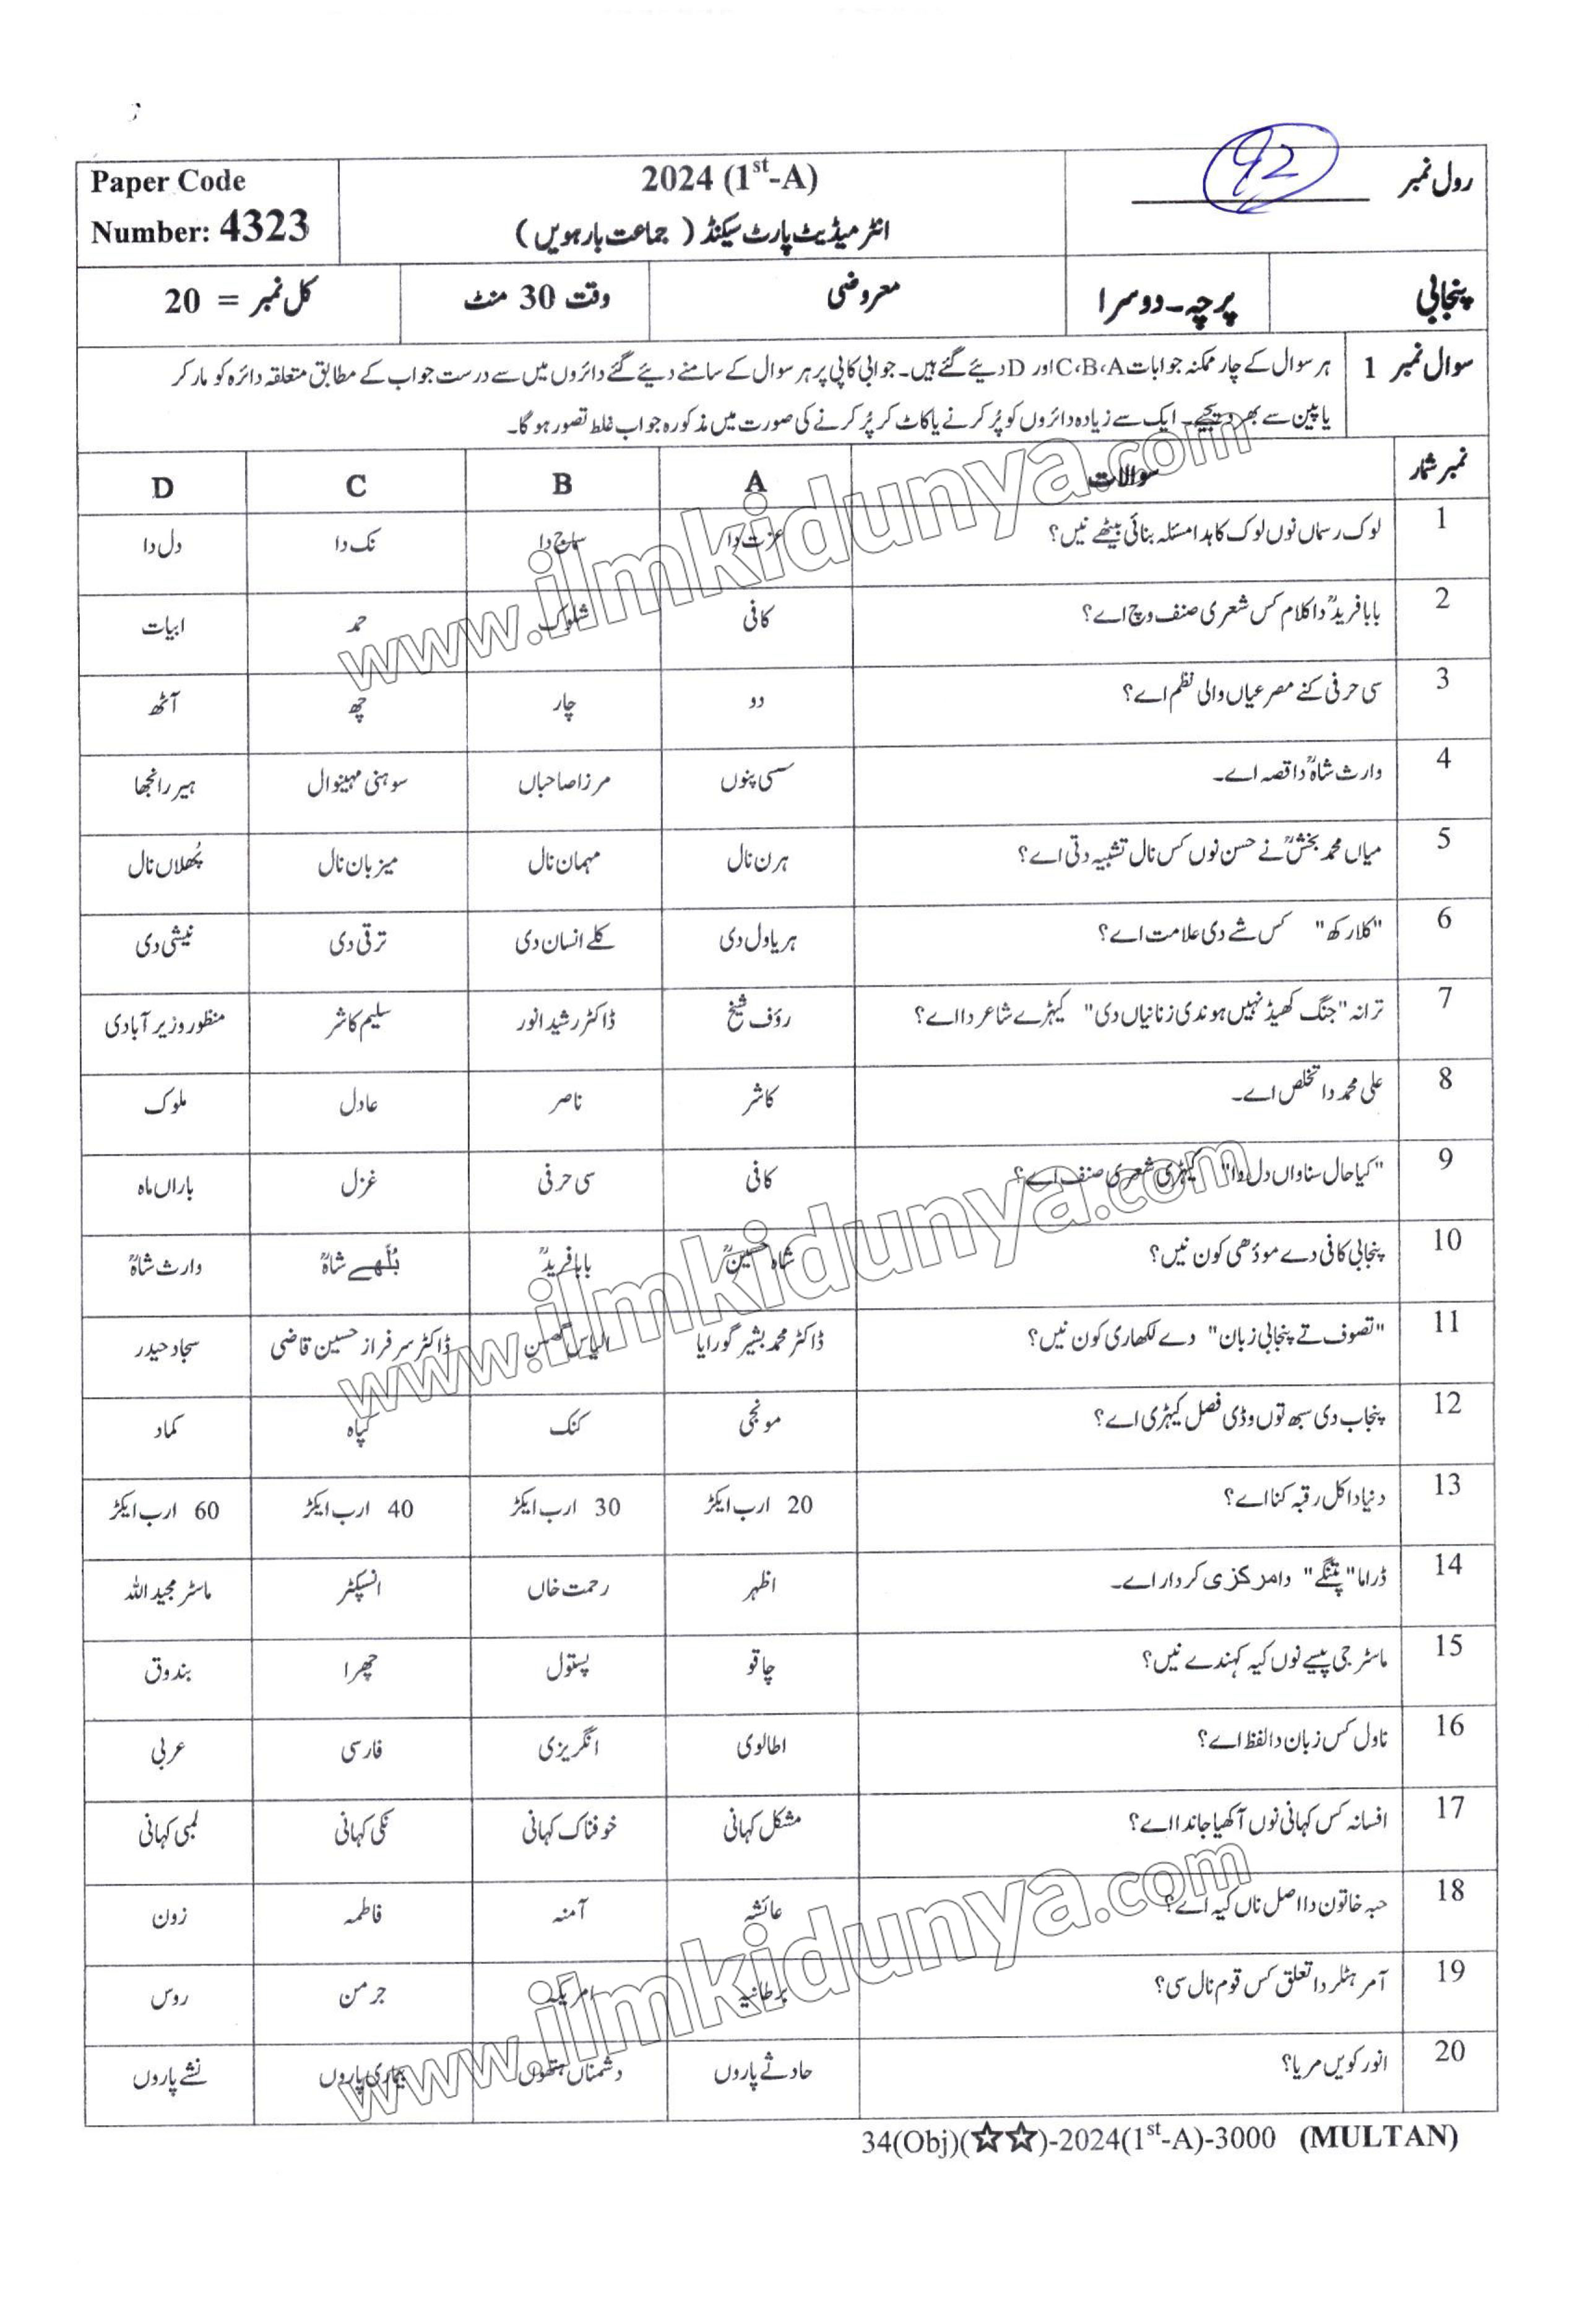 Paper Code
Number: 4323
2024 (1st-A)
انٹرمیڈیٹ پارٹ سیکنڈ ( جماعت بارہویں )
رول نمبر
92
پنجابی
پرچہ۔دوسرا
معروضی
وقت 30 منٹ
کل نمبر = 20
سوال نمبر 1
ہر سوال کے چار ممکنہ جوابات C،B،A اور D دیئے گئے ہیں۔ جوابی کاپی پر ہر سوال کے سامنے دیئے گئے دائروں میں سے درست جواب کے مطابق متعلقہ دائرہ کو مارکر
یا پین سے بھر دیجیے۔ ایک سے زیادہ دائروں کو پُر کرنے یا کاٹ کر پُر کرنے کی صورت میں مذکورہ جواب غلط تصور ہو گا۔
نمبر شمار سوالات A B C D
1 لوک رسماں نوں لوک کاہدا مسئلہ بنائی بیٹھے نیں؟ عزت دا سماج دا نک دا دل دا
2 بابا فریدؒ دا کلام کس شعری صنف وچ اے؟ کافی شلوک حمد ابیات
3 سی حرفی کنے مصرعیاں والی نظم اے؟ دو چار چھ آٹھ
4 وارث شاہؒ دا قصہ اے۔ سسی پنوں مرزا صاحباں سوہنی مہینوال ہیر رانجھا
5 میاں محمد بخشؒ نے حسن نوں کس نال تشبیہ دتی اے؟ ہرن نال مہمان نال میزبان نال پُھلاں نال
6 "کلا رکھ" کس شے دی علامت اے؟ ہریاول دی کلے انسان دی ترقی دی نیشی دی
7 ترانہ "جنگ کھیڈ نہیں ہوندی زنانیاں دی" کیہڑے شاعر دا اے؟ رؤف شیخ ڈاکٹر رشید انور سلیم کاشر منظور وزیر آبادی
8 علی محمد دا تخلص اے۔ کاشر ناصر عادل ملوک
9 "کیا حال سناواں دل دا" کیہڑی شعری صنف اے؟ کافی سی حرفی غزل باراں ماہ
10 پنجابی کافی دے موڈھی کون نیں؟ شاہ حسینؒ بابا فریدؒ بُلّھے شاہؒ وارث شاہؒ
11 "تصوف تے پنجابی زبان" دے لکھاری کون نیں؟ ڈاکٹر محمد بشیر گورایا الیاس گھمن ڈاکٹر سرفراز حسین قاضی سجاد حیدر
12 پنجاب دی سبھ توں وڈی فصل کیہڑی اے؟ مونجی کنک کپاہ کماد
13 دنیا دا کل رقبہ کنا اے؟ 20 ارب ایکڑ 30 ارب ایکڑ 40 ارب ایکڑ 60 ارب ایکڑ
14 ڈراما "پتنگے" دا مرکزی کردار اے۔ اظہر رحمت خاں انسپکٹر ماسٹر مجید اللہ
15 ماسٹر جی پیسے نوں کیہ کہندے نیں؟ چاقو پستول چھرا بندوق
16 ناول کس زبان دا لفظ اے؟ اطالوی انگریزی فارسی عربی
17 افسانہ کس کہانی نوں آکھیا جاندا اے؟ مشکل کہانی خوفناک کہانی نکی کہانی لمبی کہانی
18 حبہ خاتون دا اصل ناں کیہ اے؟ عائشہ آمنہ فاطمہ زون
19 آمر ہٹلر دا تعلق کس قوم نال سی؟ برطانیہ امریکہ جرمن روس
20 انور کویں مریا؟ حادثے پاروں دشمناں ہتھوں بیماری پاروں نشے پاروں
34(Obj)(☆☆)-2024(1st-A)-3000 (MULTAN)
www.ilmkidunya.com
www.ilmkidunya.com
www.ilmkidunya.com